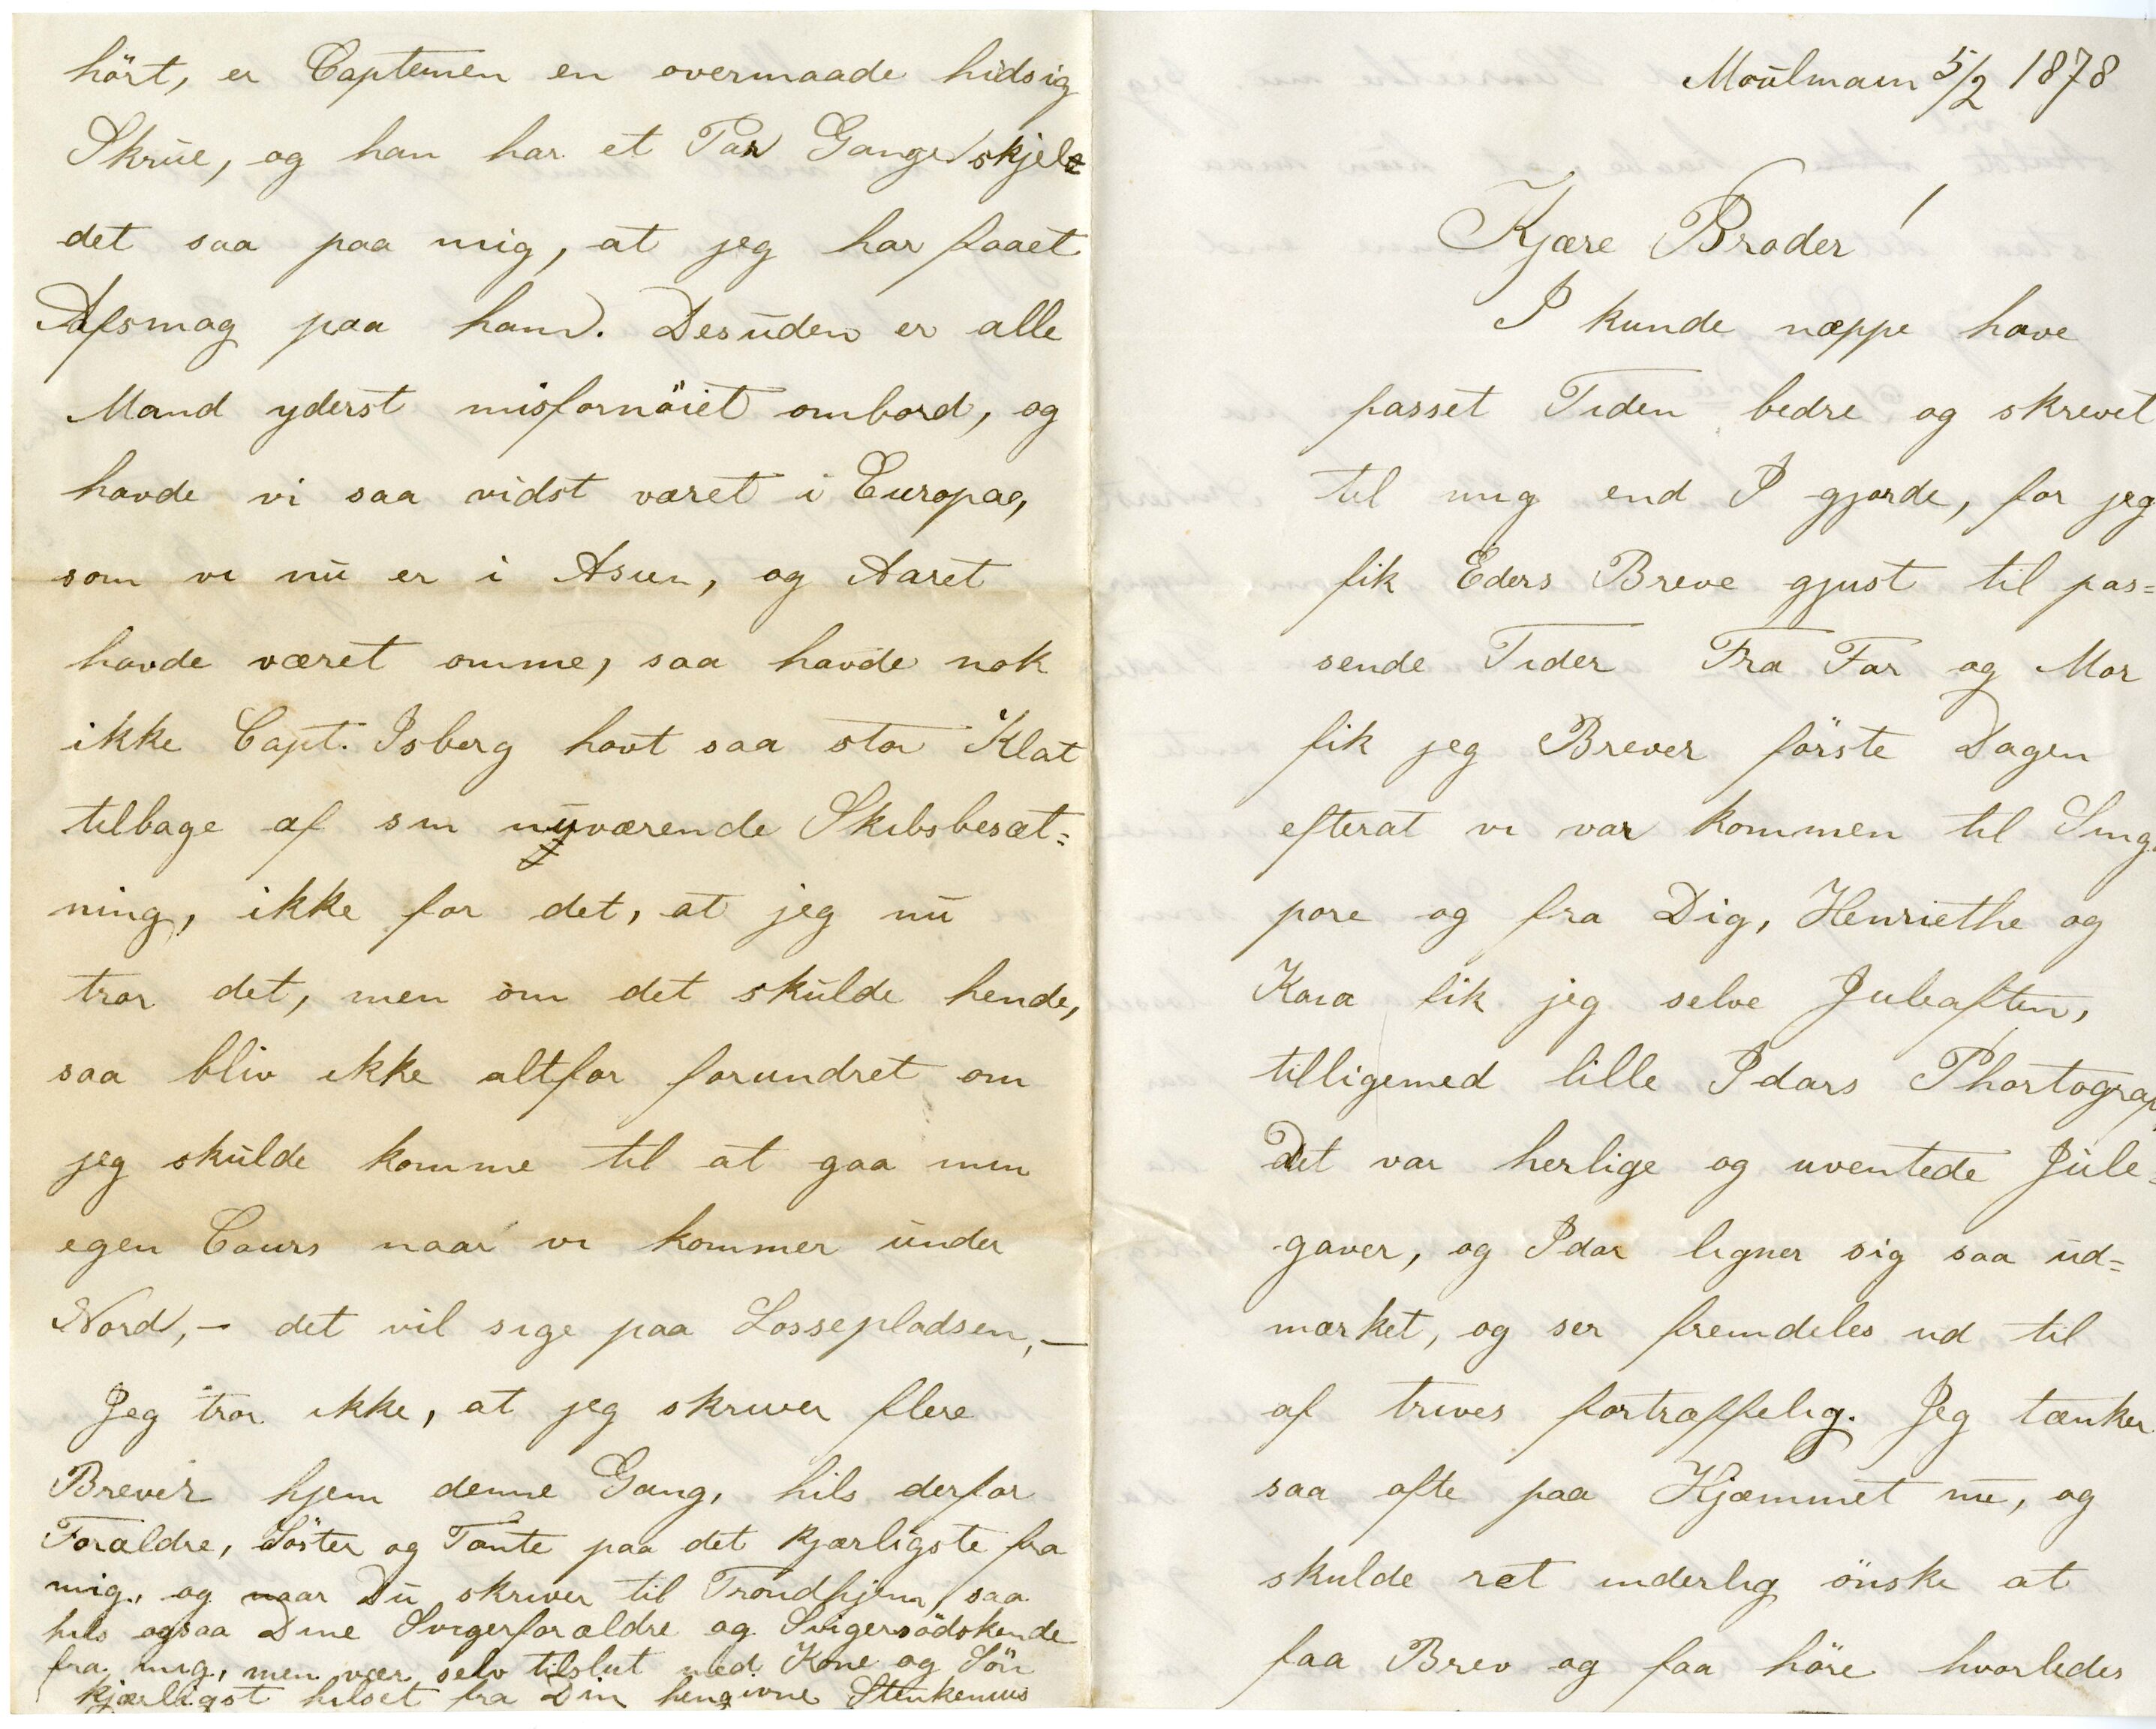 Moülmain 5/2 1878
Kjære Broder!
I kunde næppe have
passet Tiden bedre og skrevet
til mig end I gjorde, for jeg
fik Eders Breve gjust til pas=
sende Tider Fra Far og Mor
fik jeg Brever förste Dagen
efterat vi var kommen til Singa
pore og fra Dig, Henriethe og
Kaia fik jeg selve Juleaften,
tilligemed lille Idars Phortograp
Det var herlige og uventede Jüle=
gaver, og Idar ligner sig saa üd=
mærket, og ser fremdeles ud til
af trives fortræffelig. Jeg tænker
saa ofte paa Hjæmmet nü, og
skulde ret inderlig önske at
faa Brev og faa höre hvorledes
hört, er Capteinen en overmaade hidsig
Skrüe, og han har et Par Gange skjelt
det saa paa mig, at jeg har faaet
Afsmag paa ham. Desüden er alle
Mand yderst misfornöiet ombord, og
havde vi saa vidst været i Europa,
som vi nü er i Asien, og Aaret
havde været omme, saa havde nok
ikke Capt. Isberg havt saa stor Klat
tilbage af sin nüværende Skibsbesæt=
ning, ikke for det, at jeg nü
tror det, men om det skülde hende,
saa bliv ikke altfor forundret om
jeg skülde komme til at gaa min
egen Cours naar vi kommer ünder
Nord,- det vil sige paa Lossepladsen,-
Jeg tror ikke, at jeg skriver flere
Brever hjem denne Gang, hils derfor
Forældre, Söster og Tante paa det kjærligste fra
mig, og naar Dü skriver til Trondhjem, saa
hils ogsaa Dine Svigerforældre og Svigersödskende
fra mig, men vær selv tilslut med Kone og Sön
kjærligst hilset fra Din hengivne Stenkenius